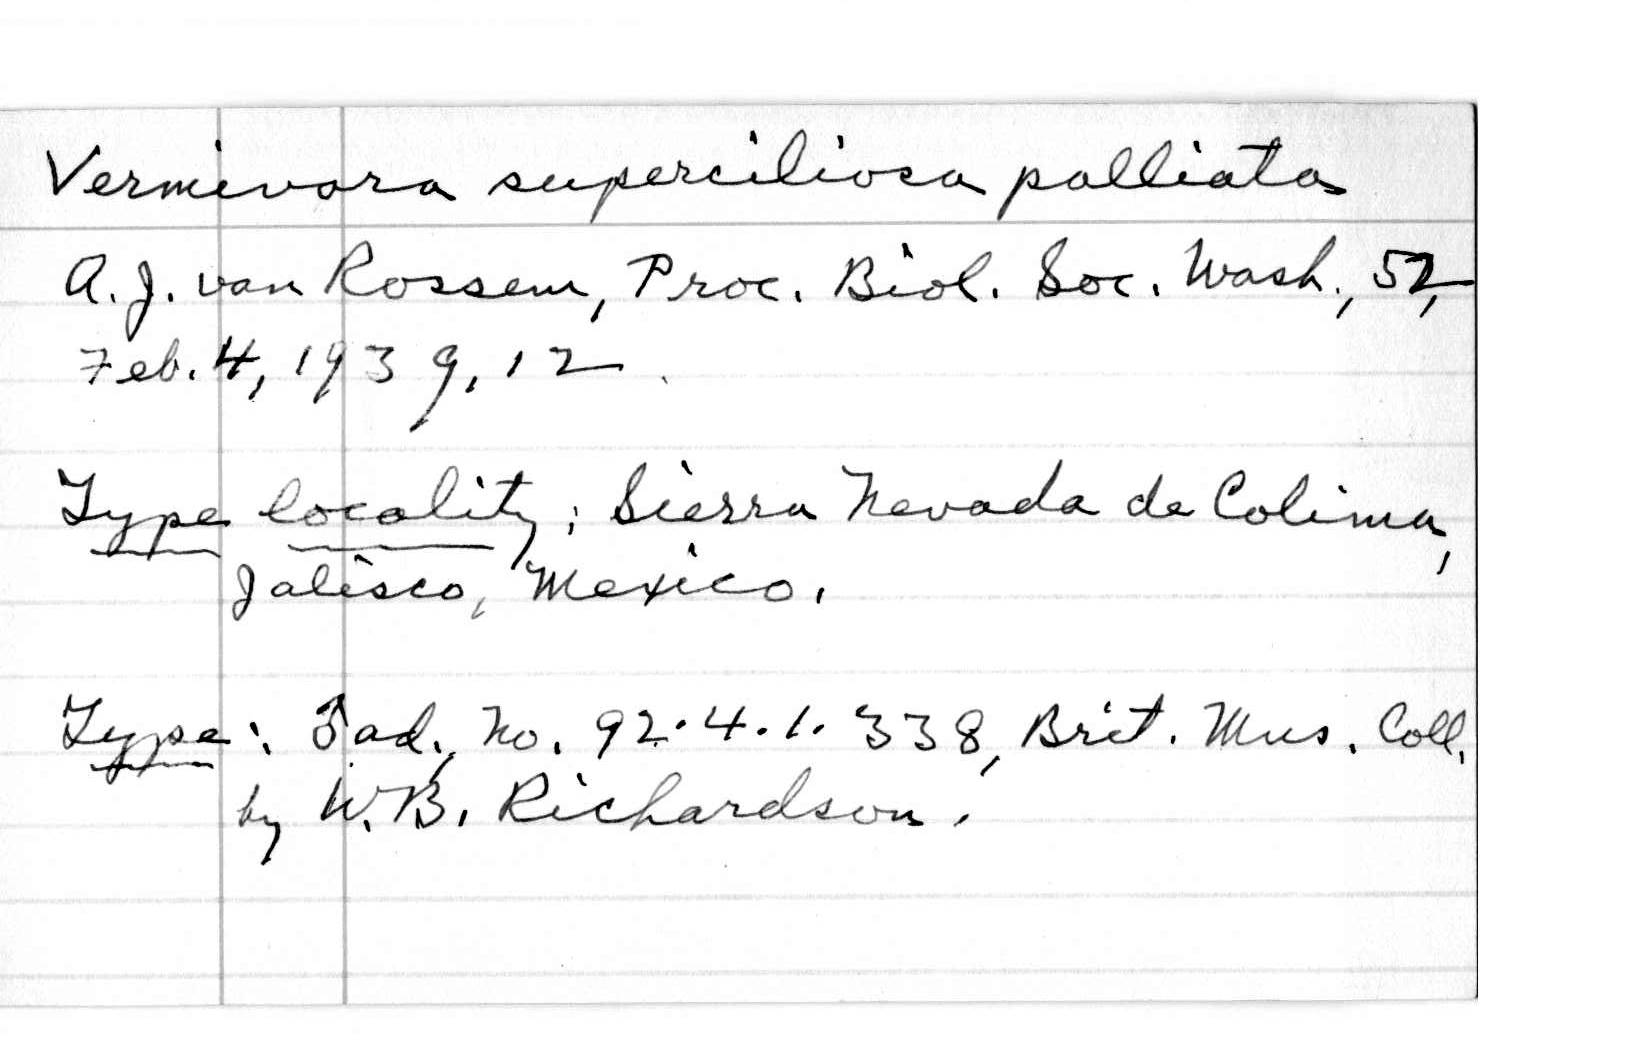 Vermivora superciliosa palliata
A. J. van Rossem, Proc. Biol. Soc. Wash., 52,
Feb. 4, 1939, 12.
Type locality: Sierra Nevada de Colima,
Jalisco, Mexico.
Type: ♂ ad., No. 92.4.1.338, Brit. Mus. Coll.
by W. B. Richardson.